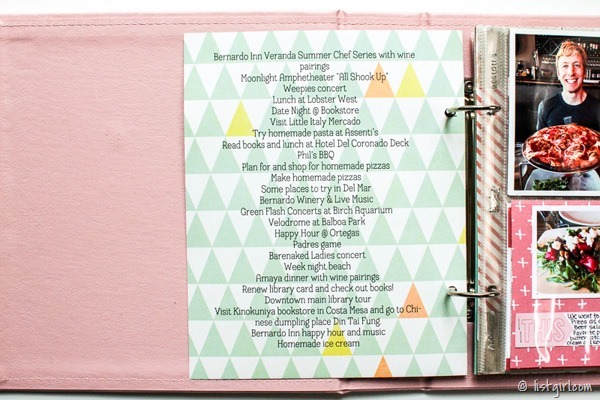 Bernardo Inn Veranda Summer Chef Series with wine
pairings
Moonlight Amphetheater "All Shook Up"
Weepies concert
Lunch at Lobster West
Date Night @ Bookstore
Visit Little Italy Mercado
Try homemade pasta at Assenti's
Read books and lunch at Hotel Del Coronado Deck
Phil's BBQ
Plan for and shop for homemade pizzas
Make homemade pizzas
Some places to try in Del Mar
Bernardo Winery & Live Music
Green Flash Concerts at Birch Aquarium
Velodrome at Balboa Park
Happy Hour @ Ortegas
Padres game
Barenaked Ladies concert
Week night beach
Amaya dinner with wine pairings
Renew library card and check out books!
Downtown main library tour
Visit Kinokuniya bookstore in Costa Mesa and go to Chi-
nese dumpling place Din Tai Fung.
Bernardo Inn happy hour and music
Homemade ice cream
THIS
We went to
Pizza as
Beet sala
Favorite p
© listgirl.com